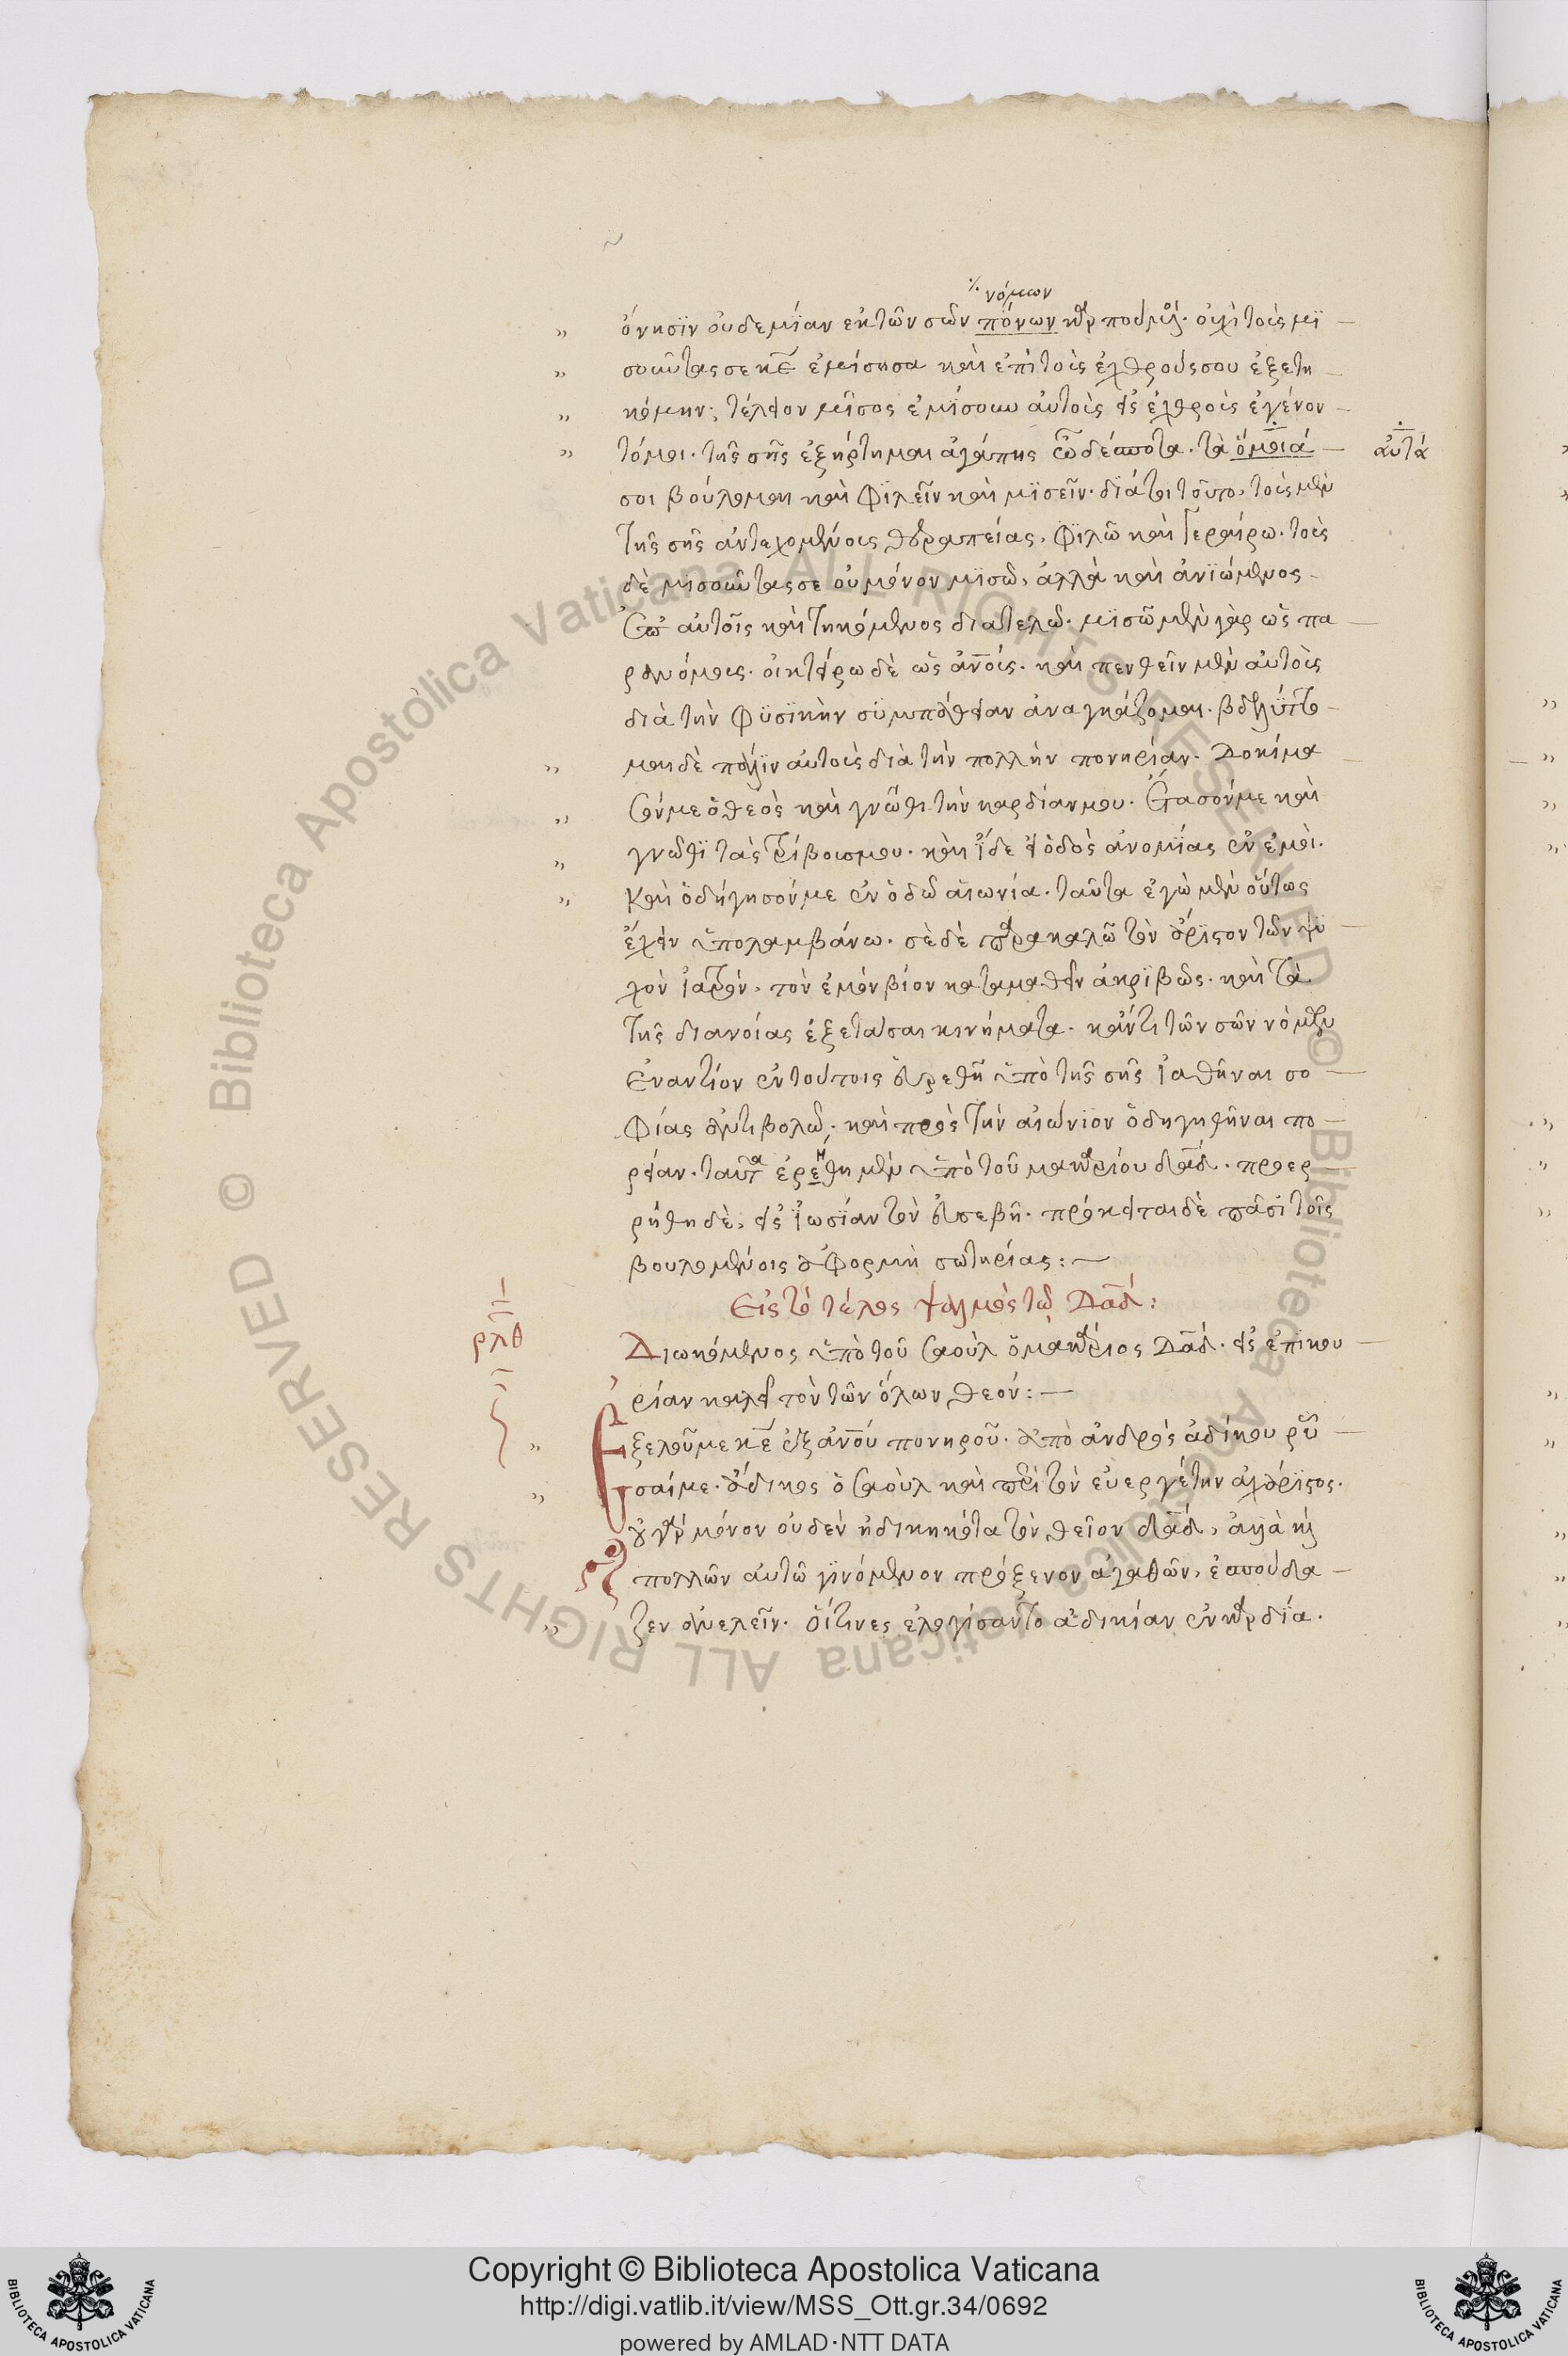 νόμων
ὄνησϊν οὐδεμΐαν ἐκ τῶν σῶν πόνων καρπούμϟοι. οὐχὶ τοὺς μϊ
σοῦντας σε κε ἐμίσησα καὶ ἐπὶ τοὺς ἐχθρούς σου ἐξετη
κόμην; τέλειον μῖσος ἐμίσουν αὐτοὺς εἰς ἐχθροὺς ἐγένον
τό μοι. τῆς σῆς ἐξήρτημαι ἀγάπης ὦ δέσποτα. τὰ ὅμοιά αὐτά
σοι βούλομαι καὶ φϊλεῖν καὶ μϊσεῖν. διάτοι τοῦτο, τοὺς μὲν
τῆς σῆς ἀντεχομένους θεραπείας, φϊλῶ καὶ γεραίρω. τοὺς
δὲ μισοῦντας σε οὐ μόνον μϊσῶ, ἀλλὰ καὶ ἀνϊώμενος
ἐπ αὐτοῖς καὶ τηκόμενος διατελῶ. μϊσῶ μὲν γὰρ ὡς πα
ρανόμους. οἰκτείρω δὲ ὡς ἀνους. καὶ πενθεῖν μὲν αὐτοὺς
διὰ τὴν φϋσϊκὴν συμπάθειαν ἀναγκάζομαι. βδελύττο
μαι δὲ πάλϊν αὐτοὺς διὰ τὴν πολλὴν πονηρίαν. Δοκίμα
σόν με ὁ θεὸς καὶ γνῶθι τὴν καρδίαν μου. ἔτασόν με καὶ
γνῶθϊ τὰς τρίβους μου. καὶ ἴδε εἰ ὁδὸς ἀνομΐας ἐν ἐμοὶ.
Καὶ ὁδήγησόν με ἐν ὁδῶ αἰωνία. ταῦτα ἐγὼ μὲν οὕτως
ἔχειν ὑπολαμβάνω. σὲ δὲ παρακαλῶ τὸν ἄριστον τῶν ψυ
χῶν ἰατρόν, τὸν ἐμὸν βίον καταμαθεῖν ἀκρϊβῶς. καὶ τὰ
τῆς διανοίας ἐξετάσαι κινήματα. κἄν τι τῶν σῶν νόμων
ἐναντίον ἐν τούτοις εὑρεθῆ ὑπὸ τῆς σῆς ἰαθῆναι σο
φίας ἀντιβολῶ, καὶ πρὸς τὴν αἰώνϊον ὁδηγηθῆναι πο
ρείαν. ταῦτα ἐρεηθη μὲν ὑπὸ τοῦ μακαρίου δαδ. προερ
ρήθη δὲ, εἰς ἰωσϊαν τὸν εὐσεβῆ. πρόκειται δὲ πᾶσϊ τοῖς
βουλομένοις ἀφορμὴ σωτηρίας:
Εἰς τὸ τέλος ψαλμὸς τῷ Δαδ:
ρλθ
Διωκόμενος ὑπὸ τοῦ σαοὺλ ὁ μακάριος Δαδ. εἰς ἐπικου
ρίαν καλεῖ τὸν τῶν ὅλων θεόν:
Ἐξελοῦ με κε ἐξ ἀνου πονηροῦ. ἀπὸ ἀνδρὸς ἀδίκου ρῦ
σαί με. ἄδικος ὁ σαοὺλ καὶ περὶ τὸν εὐεργέτην ἀχάρϊστος.
οὐ γὰρ μόνον οὐδὲν ἠδικηκότα τὸν θεῖον δαδ, ἀλλὰ καὶ
πολλῶν αὐτῶ γϊνόμενον πρόξενον ἀγαθῶν, ἐσπούδα
ζεν ἀνελεῖν. οἵτινες ἐλογίσαντο ἀδικίαν ἐν καρδία.
Copyright © Biblioteca Apostolica Vaticana
http://digi.vatlib.it/view/MSS_Ott.gr.34/0692
powered by AMLAD·NTT DATA
BIBLIOTECA APOSTOLICA VATICANA
BIBLIOTECA APOSTOLICA VATICANA
© Biblioteca Apostolica Vaticana ALL RIGHTS RESERVED
© Biblioteca Apostolica Vaticana ALL RIGHTS RESERVED